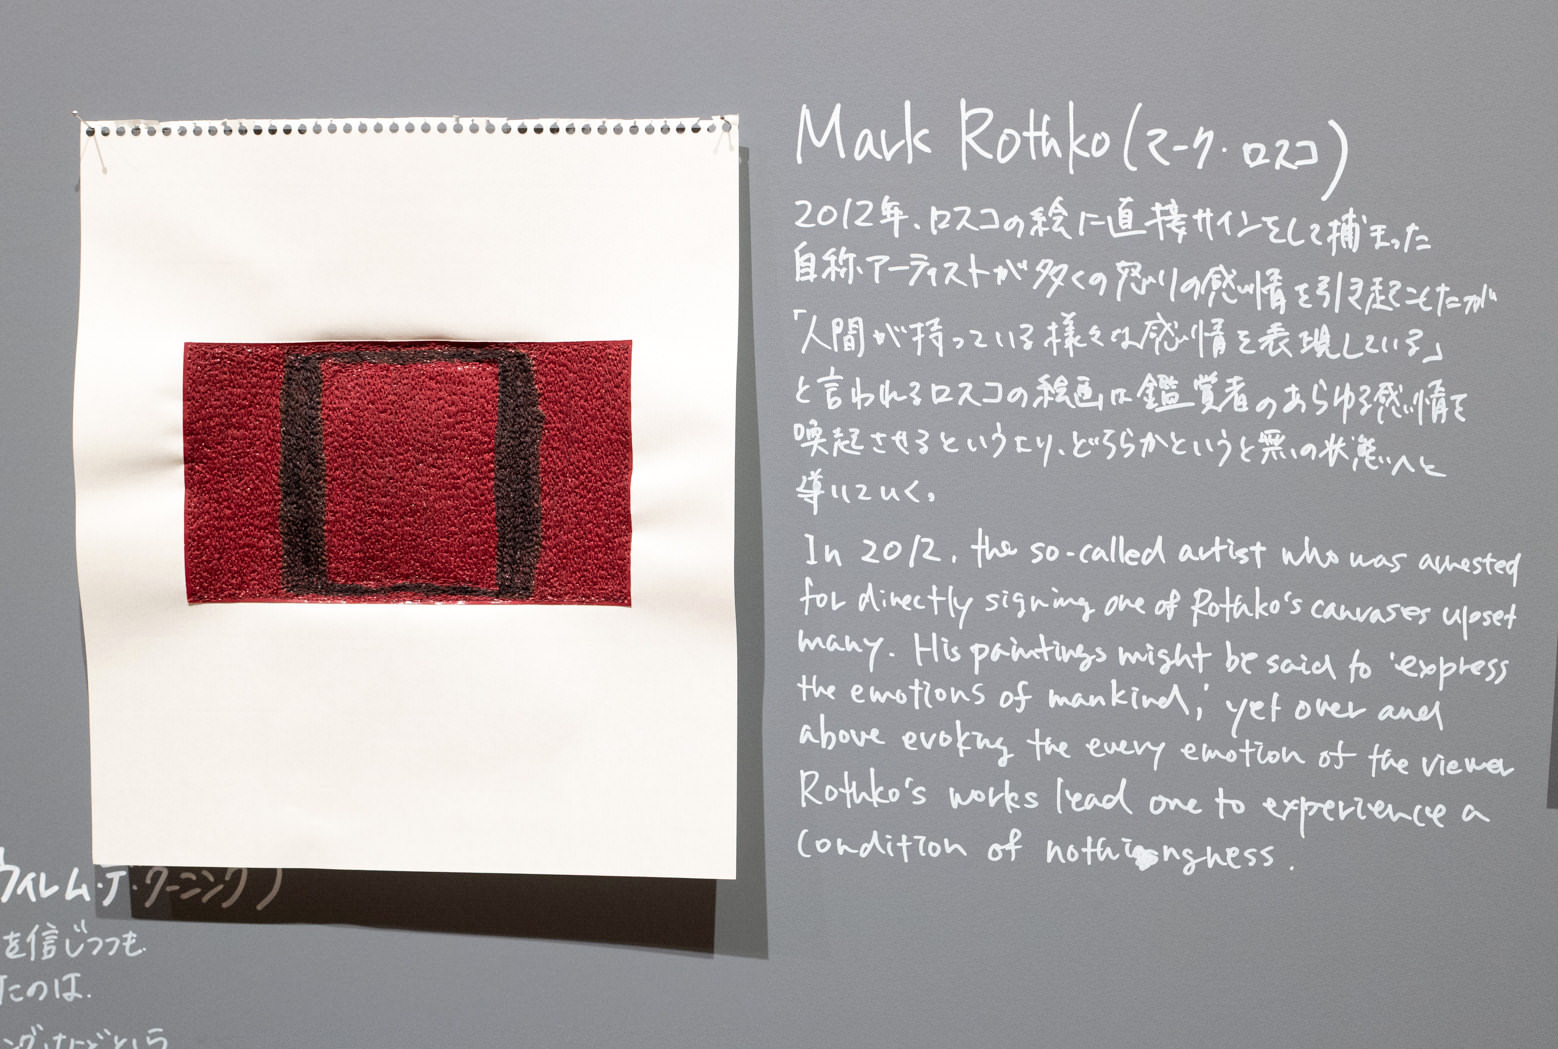 Mark Rothko (マーク・ロスコ)
2012年、ロスコの絵に直接サインをして捕まった
自称・アーティストが多くの怒りの感情を引き起こしたが
「人間が持っている様々な感情を表現している」
と言われるロスコの絵画は鑑賞者のあらゆる感情を
喚起させるというより、どちらかというと無の状態へと
導いていく。
In 2012, the so-called artist who was arrested
for directly signing one of Rothko's canvases upset
many. His paintings might be said to 'express
the emotions of mankind,' yet over and
above evoking the every emotion of the viewer
Rothko's works lead one to experience a
condition of nothingness.
ウィレム・デ・クーニング)
を信じつつも
たのは、